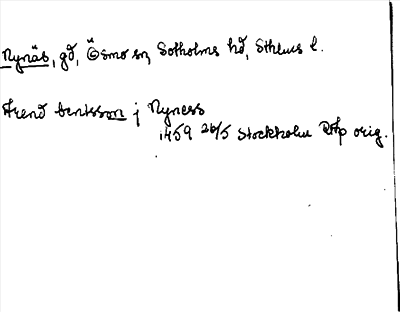 Nynäs, gd, Ösmo sn, Sotholms hd, Sthlms l.
Erend bentsson j Nyness
1459 26/5 Stockholm RAp orig.